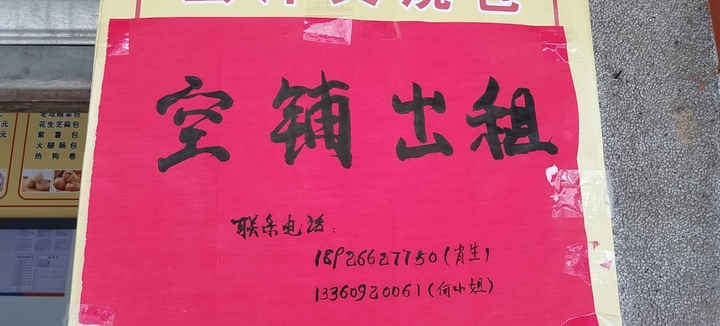 空铺出租
联系电话:
18926627750(肖生)
13360920061(何小姐)
花生芝麻包
紫薯包
火腿肠包
热狗卷